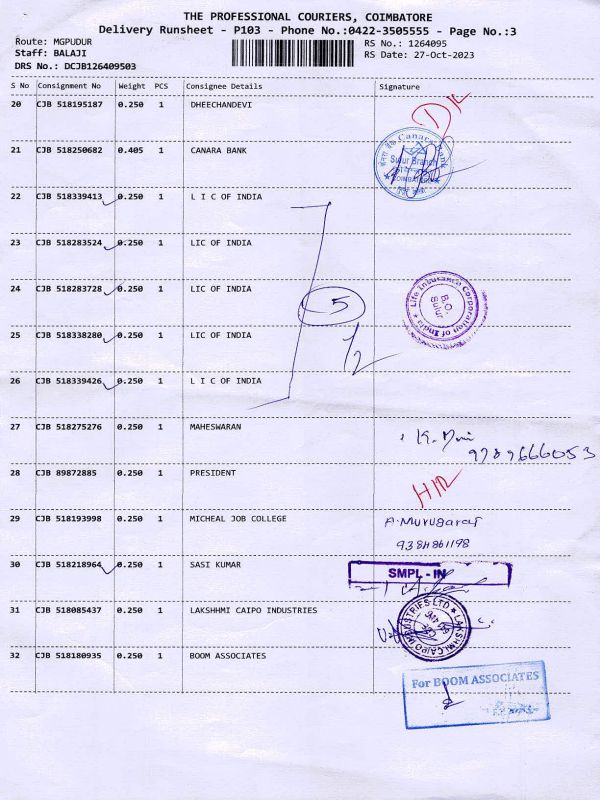 THE PROFESSIONAL COURIERS, COIMBATORE
Delivery Runsheet - P103 - Phone No.:0422-3505555 - Page No.:3
Route: MGPUDUR RS No.: 1264095
Staff: BALAJI RS Date: 27-Oct-2023
DRS No.: DCJB126409503
S No Consignment No Weight PCS Consignee Details Signature
20 CJB 518195187 0.250 1 DHEECHANDEVI
21 CJB 518250682 0.405 1 CANARA BANK
Canara Bank
Sulur Branch
22 CJB 518339413 0.250 1 L I C OF INDIA
23 CJB 518283524 0.250 1 LIC OF INDIA
24 CJB 518283728 0.250 1 LIC OF INDIA
5
Life Insurance Corporation of India
B.O.
Sulur
25 CJB 518338280 0.250 1 LIC OF INDIA
26 CJB 518339426 0.250 1 L I C OF INDIA
27 CJB 518275276 0.250 1 MAHESWARAN
9789666053
28 CJB 89872885 0.250 1 PRESIDENT
29 CJB 518193998 0.250 1 MICHEAL JOB COLLEGE
9384861198
30 CJB 518218964 0.250 1 SASI KUMAR
SMPL - IN
31 CJB 518085437 0.250 1 LAKSHHMI CAIPO INDUSTRIES
32 CJB 518180935 0.250 1 BOOM ASSOCIATES
For BOOM ASSOCIATES